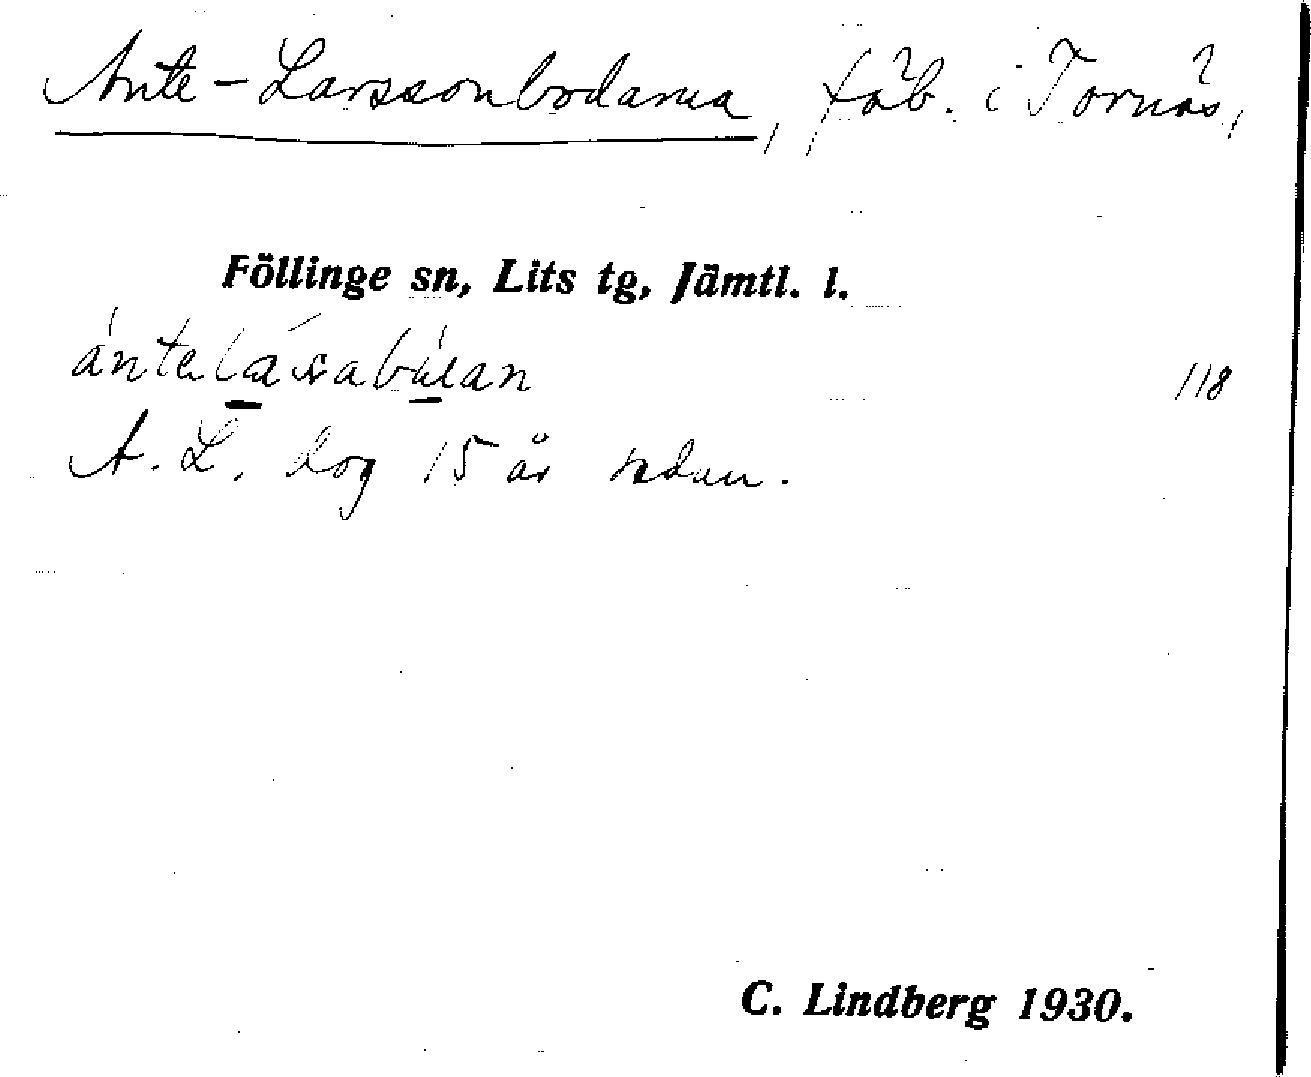 Ante-Larssonbodarna, fäb. i Tornäs,
Föllinge sn, Lits tg, Jämtl. l.
118
A. L. dog 15 år sedan.
C. Lindberg 1930.